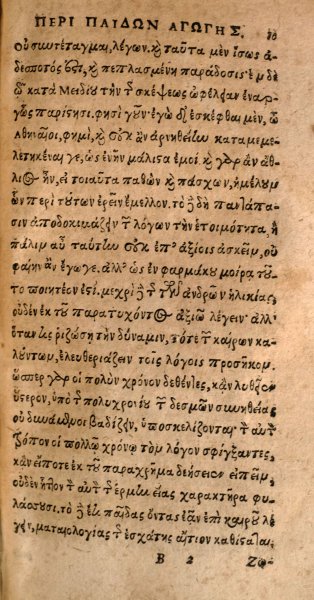 ΠΕΡΙ ΠΑΙΔΩΝ ΑΓΩΓΗΣ.
οὐ συντέταγμαι, λέγων. καὶ ταῦτα μὲν ἴσως ἀ-
δεσποτός ἐστι, καὶ πεπλασμένη παράδοσις· ἐν δὲ
τῷ κατὰ Μειδίου τὴν τῆς σκέψεως ὠφέλειαν ἐναρ-
γῶς παρίστησι. φησὶ γοῦν· ἐγὼ δ' ἐσκέφθαι μὲν, ὦ
Ἀθηναῖοι, φημὶ, καὶ οὐκ ἂν ἀρνηθείην καταμεμε-
λετηκέναι γε, ὡς ἐνῆν μάλιστα ἐμοί. καὶ γὰρ ἂν ἄθ-
λιος ἦν, εἰ τοιαῦτα παθὼν καὶ πάσχων, ἠμέλουν
ὧν περὶ τούτων ἐρεῖν ἔμελλον. τὸ δὲ δὴ παντάπα-
σιν ἀποδοκιμάζειν τῶν λόγων τὴν ἑτοιμότητα, ἢ
πάλιν αὖ ταύτην οὐκ ἐπ' ἀξίοις ἀσκεῖν, οὐ
φαίην ἂν ἔγωγε. ἀλλ' ὡς ἐν φαρμάκου μοίρᾳ τοῦ-
το ποιητέον ἐστί. μεχρὶ δὲ τῆς τῶν ἀνδρῶν ἡλικίας,
οὐδὲν ἐκ τοῦ παρατυχόντος ἀξιῶ λέγειν· ἀλλ'
ὅταν τις ῥιζώσῃ τὴν δύναμιν, τότε τῶν καιρῶν κα-
λούντων, ἐλευθεριάζειν τοῖς λόγοις προσῆκεν.
ὥσπερ γὰρ οἱ πολὺν χρόνον δεθέντες, κἂν λυθῶσιν
ὕστερον, ὑπὸ τῆς πολυχρονίου τῶν δεσμῶν συνηθείας
οὐ δυνάμενοι βαδίζειν, ὑποσκελίζονται· τὸν αὐτὸν
τρόπον οἱ πολλῷ χρόνῳ τὸν λόγον σφίγξαντες,
κἂν εἴποτε ἐκ τοῦ παραχρῆμα δεήσειεν εἰπεῖν,
οὐδὲν ἧττον τὸν αὐτὸν τῆς ἑρμηνείας χαρακτῆρα φυ-
λάττουσι. τὸ δὲ ἔτι παῖδας ὄντας ἐᾶν ἐπὶ καιροῦ λέ-
γειν, ματαιολογίας τῆς ἐσχάτης αἴτιον καθίσταται.
B 2 ζω-